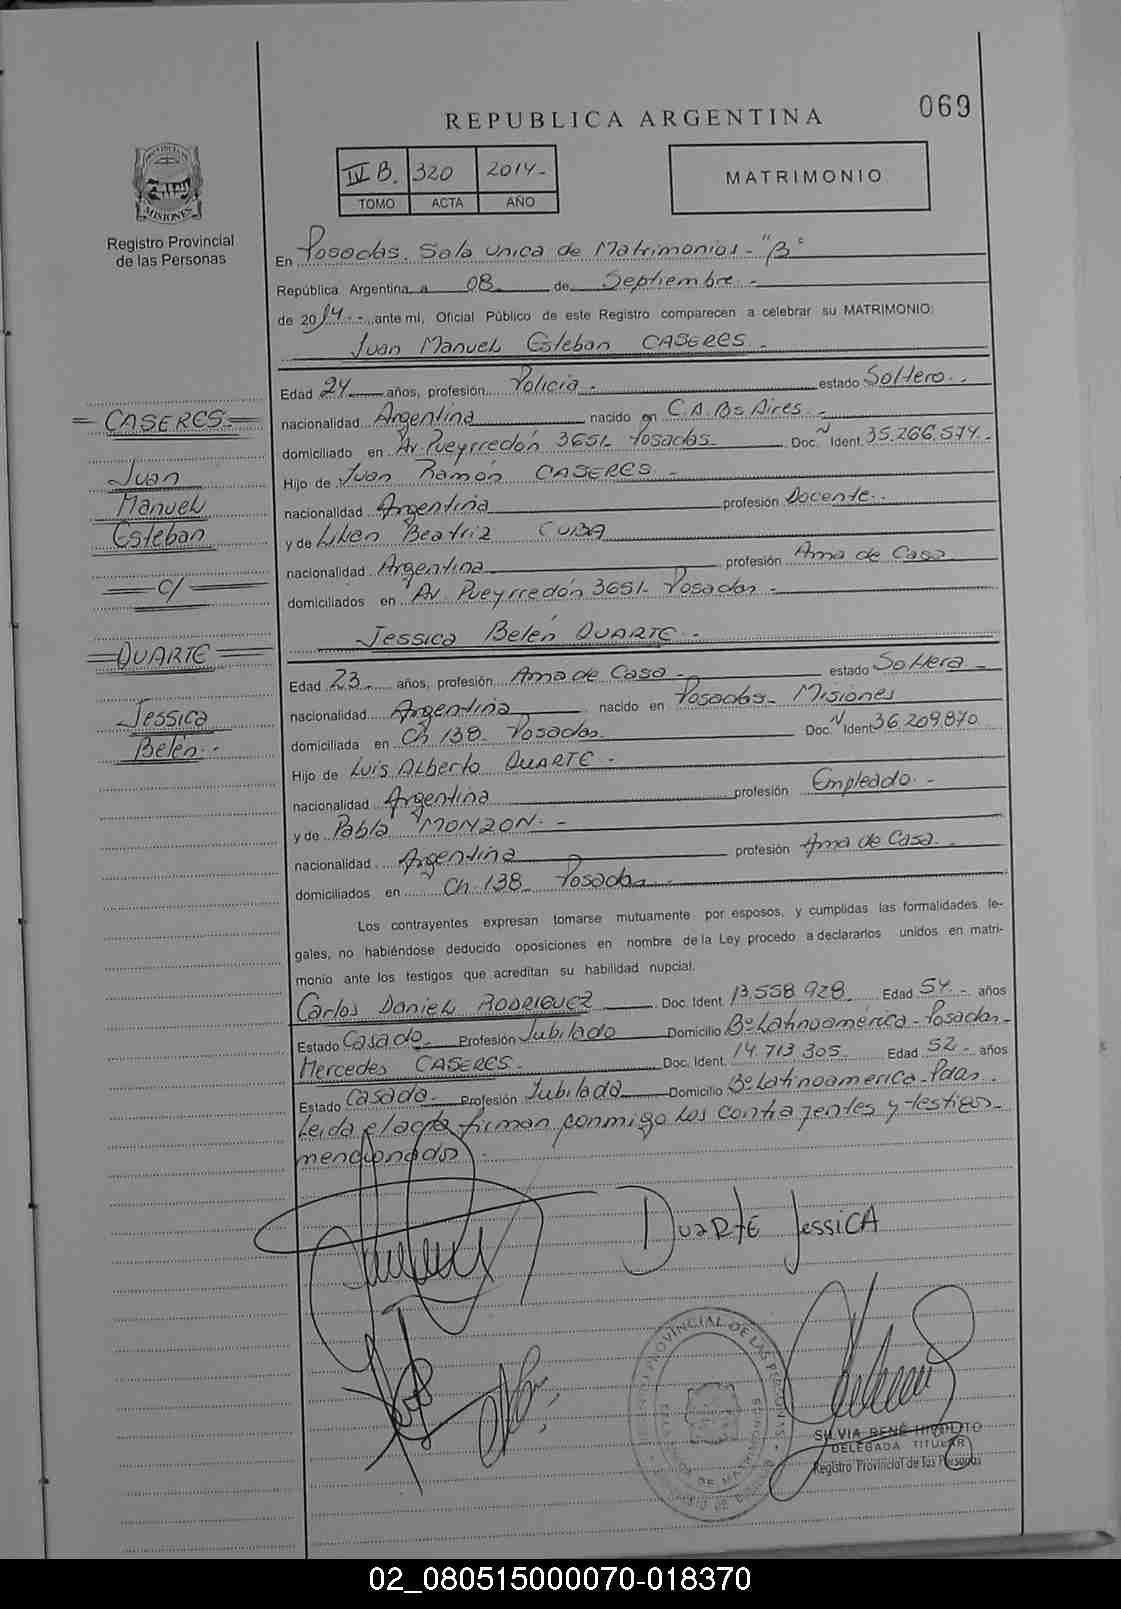 REPUBLICA ARGENTINA
069
IV B. 320 2014-
TOMO ACTA AÑO
MATRIMONIO
PROVINCIA DE MISIONES
Registro Provincial
de las Personas
En Posadas. Sala unica de Matrimonios - "B"
República Argentina, a 08 de Septiembre -
de 2014.- ante mi, Oficial Público de este Registro comparecen a celebrar su MATRIMONIO:
Juan Manuel Esteban CASERES -
Edad 24 años, profesión Policia - estado Soltero.-
nacionalidad Argentina nacido en C.A. Bs Aires -
domiciliado en Av. Pueyrredón 3651- Posadas Doc. N Ident. 35.266.574.-
Hijo de Juan Ramón CASERES -
nacionalidad Argentina profesión Docente.-
y de Lilian Beatriz CUBA
nacionalidad Argentina profesión Ama de Casa
domiciliados en Av. Pueyrredón 3651- Posadas -
= CASERES =
Juan
Manuel
Esteban
= C/ =
= DUARTE =
Jessica
Belén.-
Jessica Belén DUARTE -
Edad 23 - años, profesión Ama de Casa - estado Soltera -
nacionalidad Argentina nacido en Posadas - Misiones
domiciliada en Ch 138 Posadas Doc. N Ident 36.209.870
Hijo de Luis Alberto DUARTE -
nacionalidad Argentina profesión Empleado. -
y de Pabla MONZON. -
nacionalidad Argentina profesión Ama de Casa. -
domiciliados en Ch. 138 Posadas -
Los contrayentes expresan tomarse mutuamente por esposos, y cumplidas las formalidades le-
gales, no habiéndose deducido oposiciones en nombre de la Ley procedo a declararlos unidos en matri-
monio ante los testigos que acreditan su habilidad nupcial.
Carlos Daniel RODRIGUEZ Doc. Ident. 13.558.928 Edad 54 - años
Estado Casado Profesión Jubilado Domicilio Bº Latinoamérica - Posadas -
Mercedes CASERES - Doc. Ident. 14.713.305 Edad 52 - años
Estado Casada - Profesión Jubilada Domicilio Bº Latinoamerica - Pdas.
Leida el acta firman conmigo los contrayentes y testigos
mencionados.
DUARTE JESSICA
SILVIA RENÉ HIPOLITO
DELEGADA TITULAR
Registro Provincial de las Personas
02_080515000070-018370